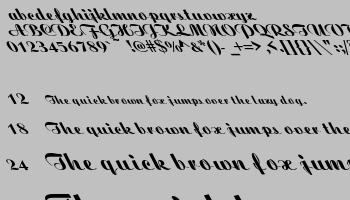 abcdefghijklmnopqrstuvwxyz
ABCDEFGHIJKLMNOPQRSTUV
0123456789 !@#$%^&*()-_+=>,<.[]{}\"
12 The quick brown fox jumps over the lazy dog.
18 The quick brown fox jumps over the
24 The quick brown fox jum